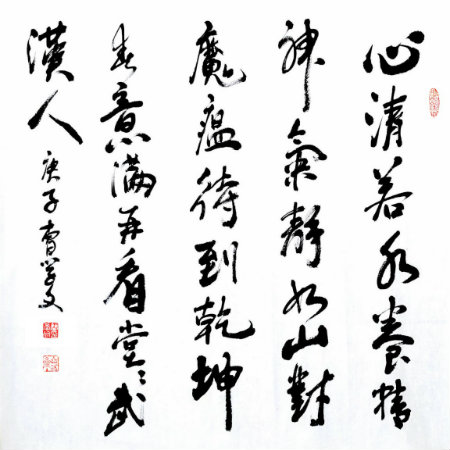 心清若水養精
神氣靜如山對
魔瘟待到乾坤
春意滿再看堂〻武
漢人
庚子曹学文